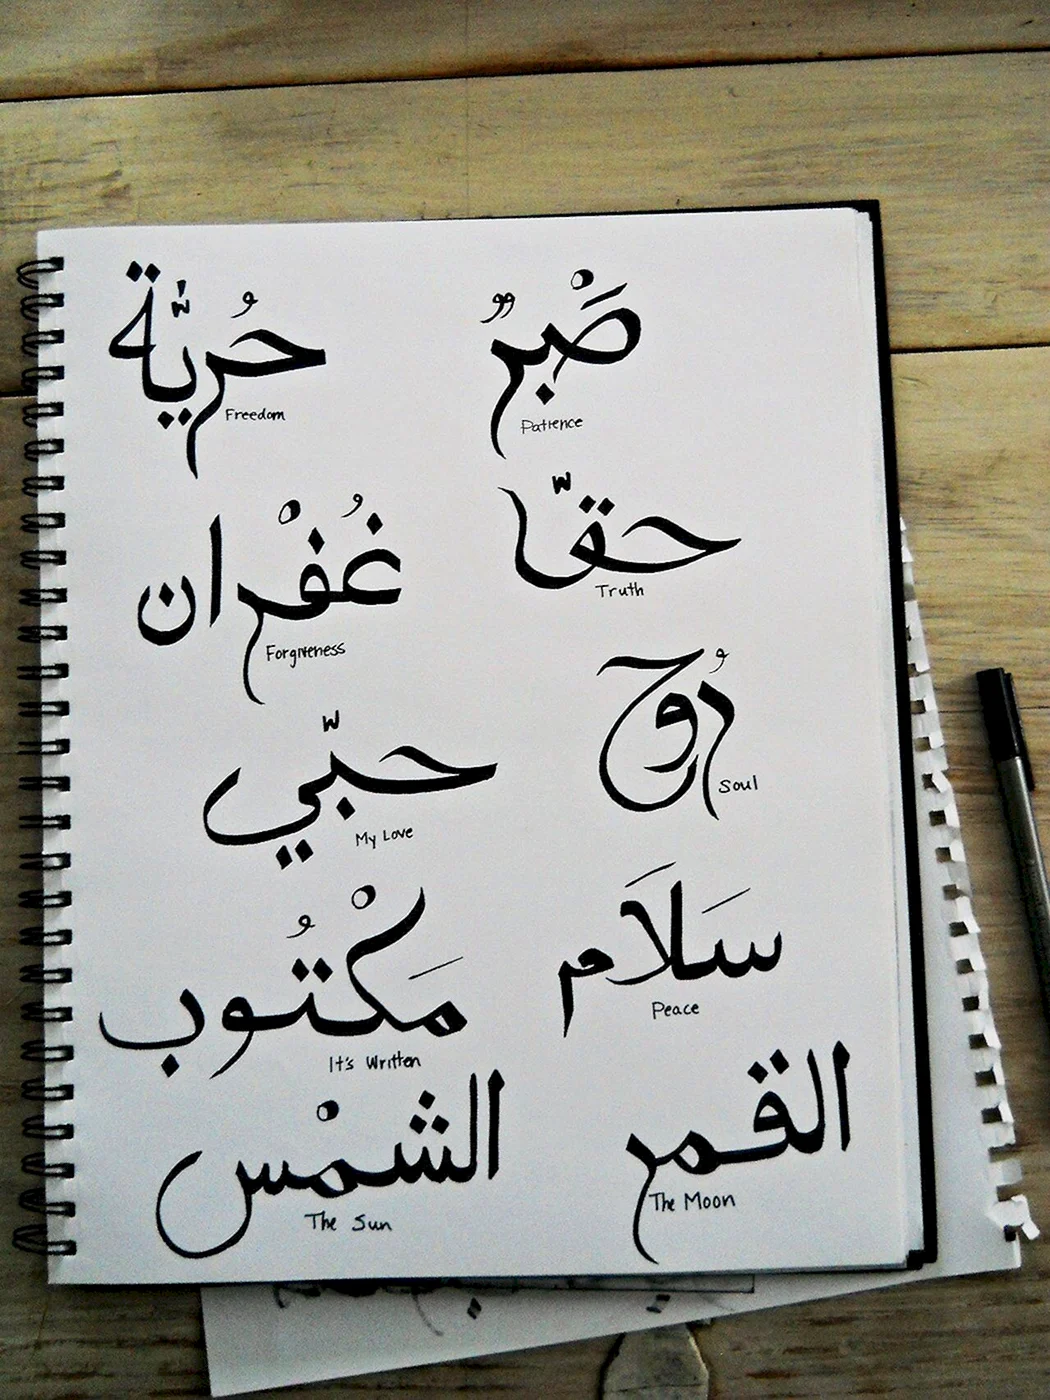 حُريّة
Freedom
صْبرٌ
Patience
غُفْران
Forgiveness
حقّا
Truth
حبّي
My Love
رُوح
Soul
مَكْتُوب
It's Written
سَلَام
Peace
الشمْس
The Sun
القمر
The Moon